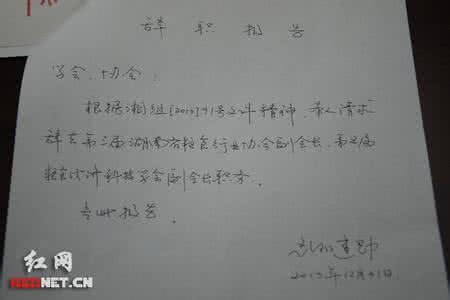 辞职报告
学会、协会:
根据湘组[2013]41号文件精神,本人请求
辞去第二届湖南省粮食行业协会副会长、第五届
粮食经济科技学会副会长职务。
专此报告。
2013年12月31日
红网
REDNET.CN